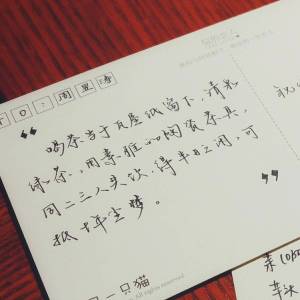 周里
“
喝茶当于瓦屋纸窗下，清泉
绿茶，用素雅的陶瓷茶具，
同二三人共饮，得半日之闲，可
抵十年尘梦。
”
一只猫
All rights reserved